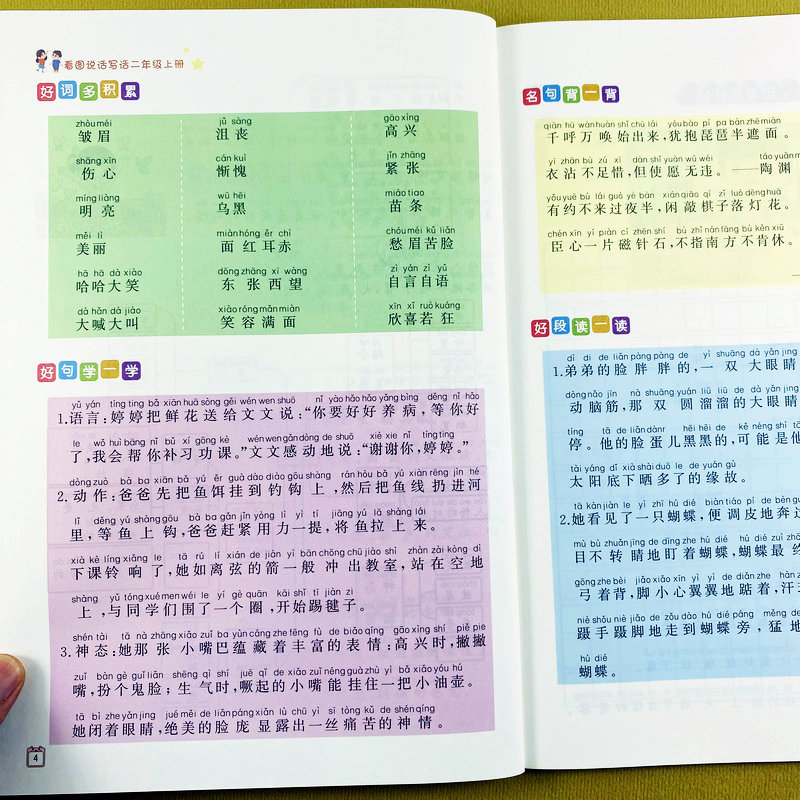 看图说话写话二年级上册
好词多积累
zhòu méi jǔ sàng gāo xìng
皱眉 沮丧 高兴
shāng xīn cán kuì jǐn zhāng
伤心 惭愧 紧张
míng liàng wū hēi miáo tiao
明亮 乌黑 苗条
měi lì miàn hóng ěr chì chóu méi kǔ liǎn
美丽 面红耳赤 愁眉苦脸
hā hā dà xiào dōng zhāng xī wàng zì yán zì yǔ
哈哈大笑 东张西望 自言自语
dà hǎn dà jiào xiào róng mǎn miàn xīn xǐ ruò kuáng
大喊大叫 笑容满面 欣喜若狂
好句学一学
yǔ yán tíng ting bǎ xiān huā sòng gěi wén wen shuō nǐ yào hǎo hǎo yǎng bìng děng nǐ hǎo
1.语言:婷婷把鲜花送给文文说:“你要好好养病,等你好
le wǒ huì bāng nǐ bǔ xí gōng kè wén wen gǎn dòng de shuō xiè xie nǐ tíng ting
了,我会帮你补习功课。”文文感动地说:“谢谢你,婷婷。”
dòng zuò bà ba xiān bǎ yú ěr guà dào diào gōu shàng rán hòu bǎ yú xiàn rēng jìn hé
2.动作:爸爸先把鱼饵挂到钓钩上,然后把鱼线扔进河
lǐ děng yú shàng gōu bà ba gǎn jǐn yòng lì yì tí jiāng yú lā shàng lái
里,等鱼上钩,爸爸赶紧用力一提,将鱼拉上来。
xià kè líng xiǎng le tā rú lí xián de jiàn yì bān chōng chū jiào shì zhàn zài kòng dì
下课铃响了,她如离弦的箭一般冲出教室,站在空地
shàng yǔ tóng xué men wéi le yí gè quān kāi shǐ tī jiàn zi
上,与同学们围了一个圈,开始踢毽子。
shén tài tā nà zhāng xiǎo zuǐ ba yùn cáng zhe fēng fù de biǎo qíng gāo xìng shí piě pie
3.神态:她那张小嘴巴蕴藏着丰富的表情:高兴时,撇撇
zuǐ bàn gè guǐ liǎn shēng qì shí juē qǐ de xiǎo zuǐ néng guà zhù yì bǎ xiǎo yóu hú
嘴,扮个鬼脸;生气时,噘起的小嘴能挂住一把小油壶。
tā bì zhe yǎn jing jué měi de liǎn páng xiǎn lù chū yì sī tòng kǔ de shén qíng
她闭着眼睛,绝美的脸庞显露出一丝痛苦的神情。
4
名句背一背
qiān hū wàn huàn shǐ chū lái yóu bào pí pa bàn zhē miàn
千呼万唤始出来,犹抱琵琶半遮面。
yī zhān bù zú xī dàn shǐ yuàn wú wéi táo yuān
衣沾不足惜,但使愿无违。——陶渊
yǒu yuē bù lái guò yè bàn xián qiāo qí zǐ luò dēng huā
有约不来过夜半,闲敲棋子落灯花。
chén xīn yí piàn cí zhēn shí bù zhǐ nán fāng bù kěn xiū
臣心一片磁针石,不指南方不肯休。
好段读一读
dì di de liǎn pàng pàng de yì shuāng dà yǎn jing
1.弟弟的脸胖胖的,一双大眼睛
dòng nǎo jīn nà shuāng yuán liū liū de dà yǎn jing
动脑筋,那双圆溜溜的大眼睛
tíng tā de liǎn dànr hēi hēi de kě néng shì tā
停。他的脸蛋儿黑黑的,可能是他
tài yáng dǐ xià shài duō le de yuán gù
太阳底下晒多了的缘故。
tā kàn jiàn le yì zhī hú dié biàn tiáo pí de bèn guò
2.她看见了一只蝴蝶,便调皮地奔过
mù bù zhuǎn jīng de dīng zhe hú dié hú dié zuì zhōng
目不转睛地盯着蝴蝶,蝴蝶最终
gōng zhe bèi jiǎo xiǎo xīn yì yì de diǎn zhe hàn
弓着背,脚小心翼翼地踮着,汗
niè shǒu niè jiǎo de zǒu dào hú dié páng měng de
蹑手蹑脚地走到蝴蝶旁,猛地
hú dié
蝴蝶。